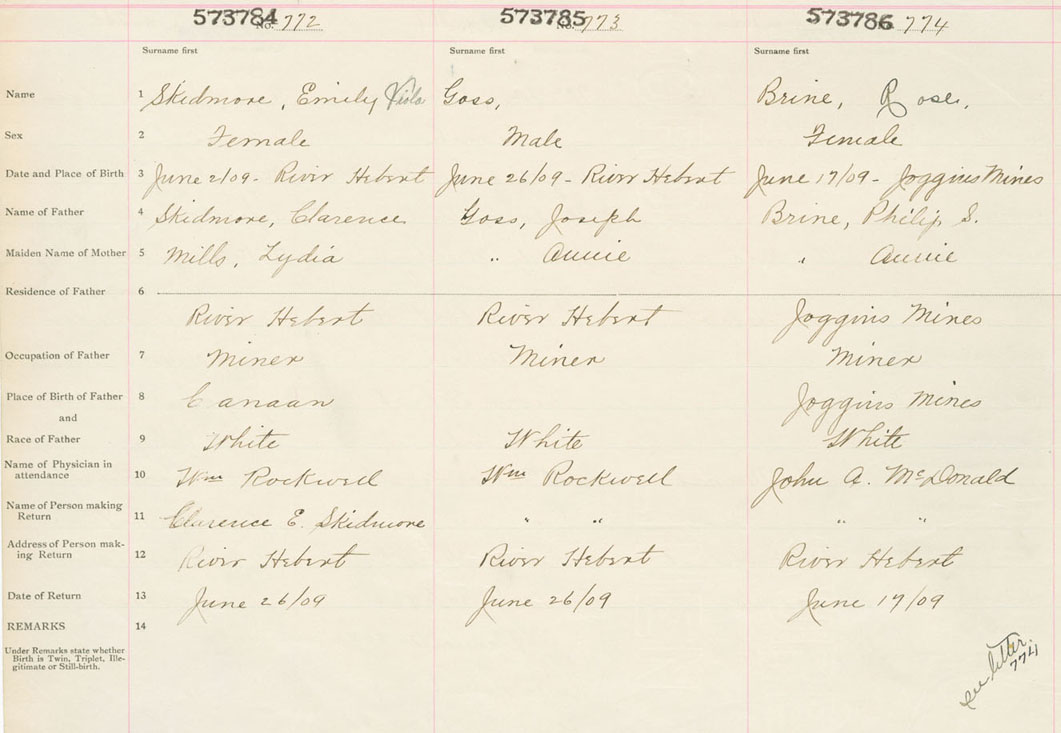 573784 No. 772 573785 No. 773 573786 774
Surname first Surname first Surname first
Name 1 Skidmore, Emily Viola Goss, Brine, Rose,
Sex 2 Female Male Female
Date and Place of Birth 3 June 2/09 - River Hebert June 26/09 - River Hebert June 17/09 - Joggins Mines
Name of Father 4 Skidmore, Clarence Goss, Joseph Brine, Philip S.
Maiden Name of Mother 5 Mills, Lydia " Annie " Annie
Residence of Father 6
River Hebert River Hebert Joggins Mines
Occupation of Father 7 Miner Miner Miner
Place of Birth of Father 8 Canaan Joggins Mines
and
Race of Father 9 White White White
Name of Physician in
attendance 10 Wm Rockwell Wm Rockwell John A. McDonald
Name of Person making
Return 11 Clarence E. Skidmore " " " "
Address of Person mak-
ing Return 12 River Hebert River Hebert River Hebert
Date of Return 13 June 26/09 June 26/09 June 17/09
REMARKS 14
Under Remarks state whether
Birth is Twin, Triplet, Ille-
gitimate or Still-birth.
see letter.
774